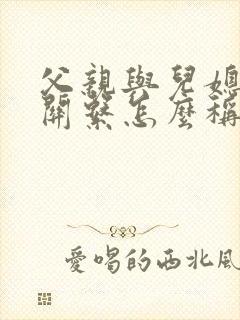 父親與兒媳
關繫怎麼稱
愛唱的西北風